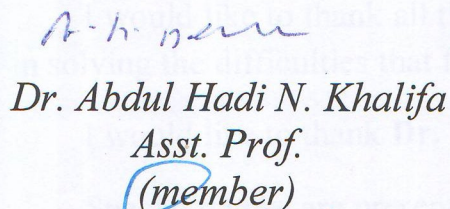 Dr. Abdul Hadi N. Khalifa
Asst. Prof.
(member)